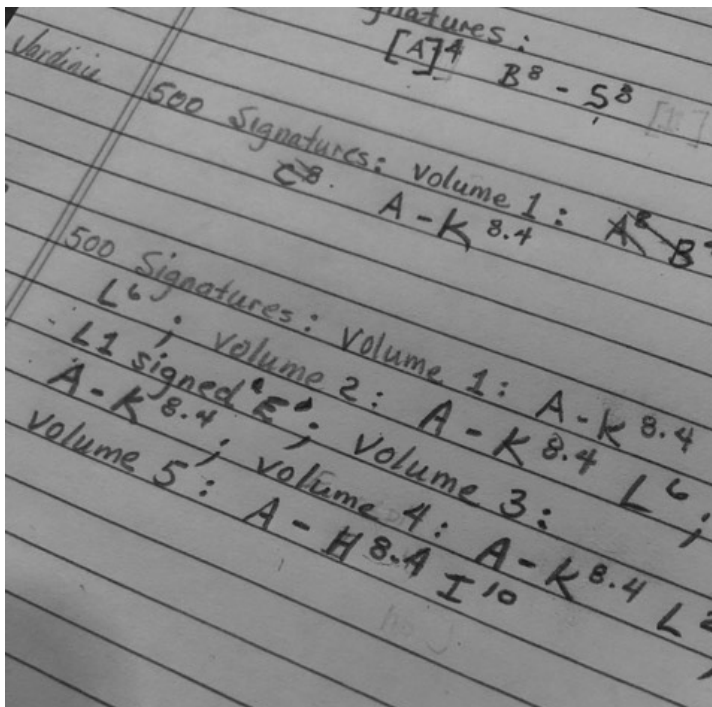 gnatures:
[A]4 B8 - S8
500 Signatures: volume 1: A8 B
C8 A - K 8.4
500 Signatures: Volume 1: A - K 8.4
L6; volume 2: A - K 8.4 L6;
L1 signed 'E'; volume 3:
A - K 8.4; volume 4: A - K 8.4 L2
volume 5: A - H 8.4 I10